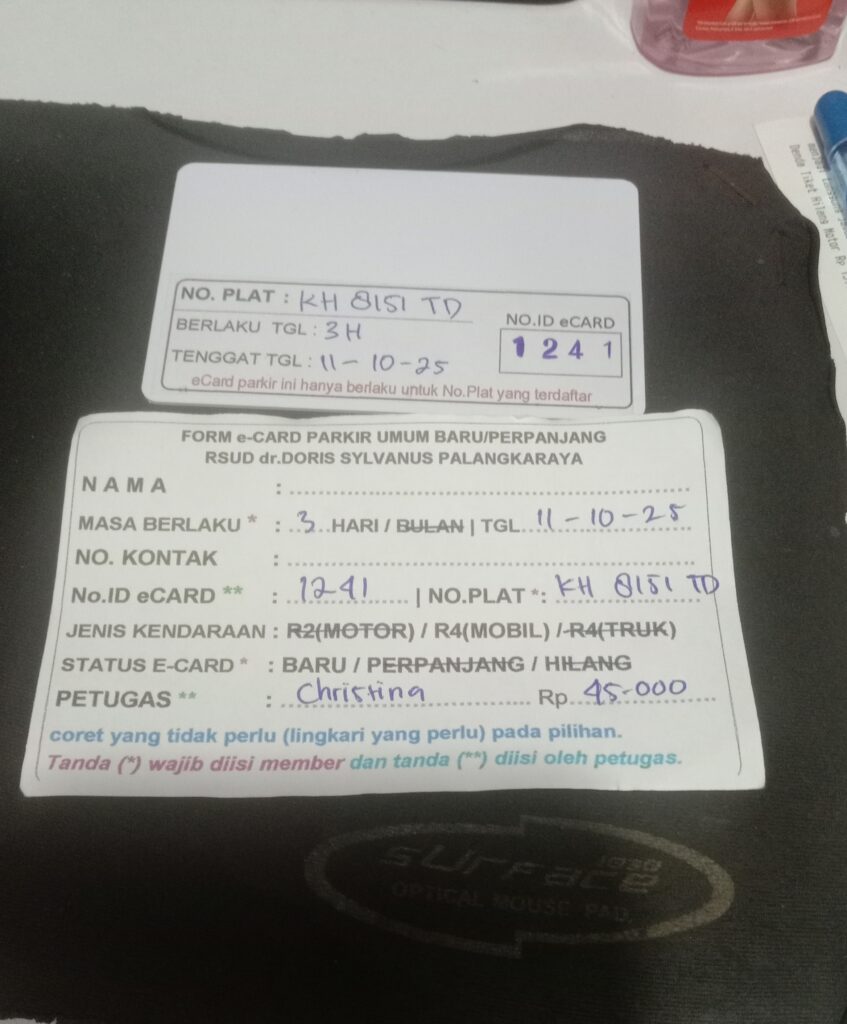 Denda Tiket Hilang Motor Rp
NO. PLAT : KH 8151 TD
BERLAKU TGL : 3H
TENGGAT TGL : 11-10-25
NO.ID eCARD
1 2 4 1
eCard parkir ini hanya berlaku untuk No.Plat yang terdaftar
FORM e-CARD PARKIR UMUM BARU/PERPANJANG
RSUD dr.DORIS SYLVANUS PALANGKARAYA
NAMA :
MASA BERLAKU * : 3 HARI / BULAN | TGL 11-10-25
NO. KONTAK :
No.ID eCARD ** : 1241 | NO.PLAT *: KH 8151 TD
JENIS KENDARAAN : R2(MOTOR) / R4(MOBIL) / R4(TRUK)
STATUS E-CARD * : BARU / PERPANJANG / HILANG
PETUGAS ** : Christina Rp 45-000
coret yang tidak perlu (lingkari yang perlu) pada pilihan.
Tanda (*) wajib diisi member dan tanda (**) diisi oleh petugas.
surface 1030
OPTICAL MOUSE PAD